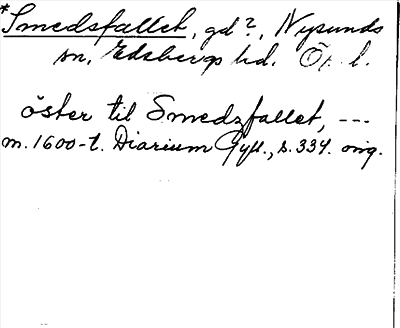 *Smedsfallet, gd?, Nysunds
sn, Edsbergs hd. Ör. l.
öster til Smedzfallet, ---
m. 1600-t. Diarium Gyll., s. 334. orig.